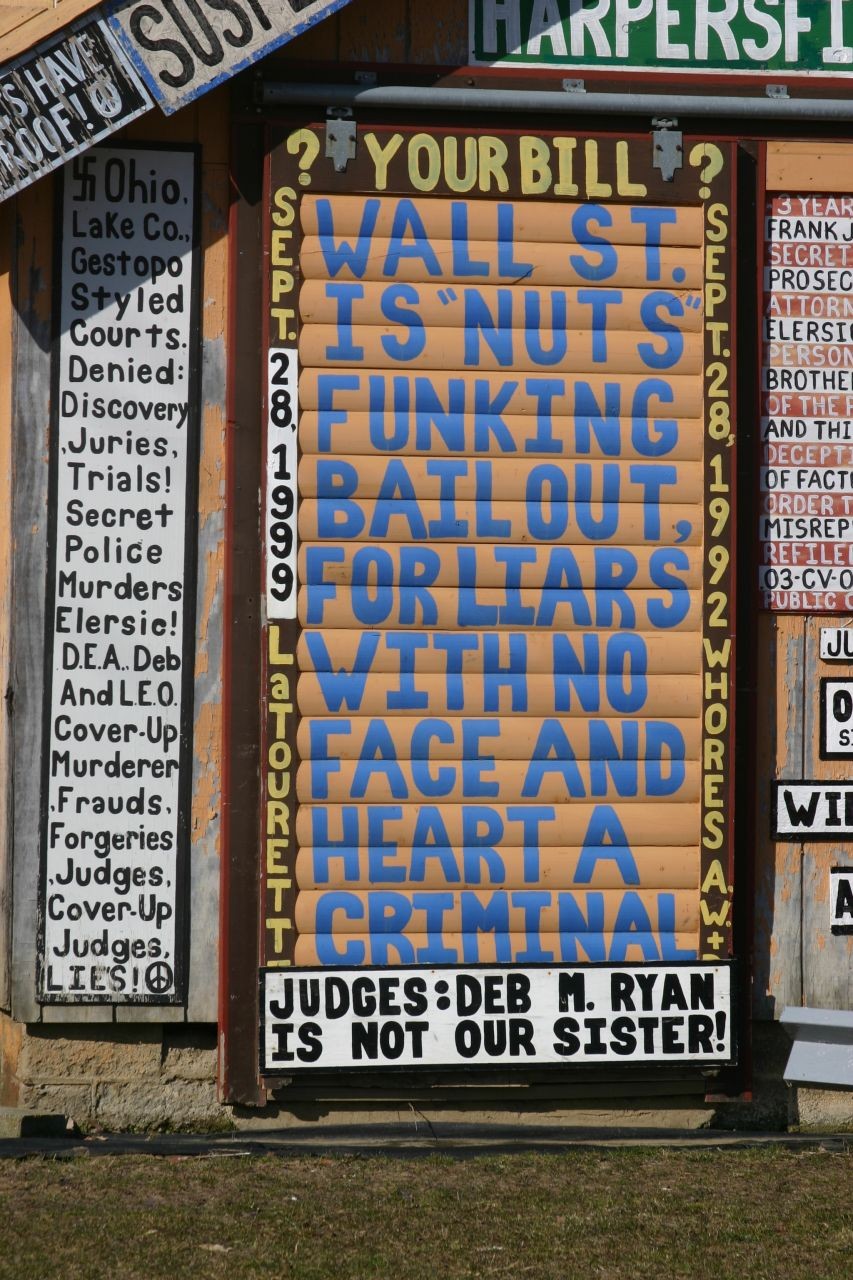 S HAVE
ROOF! ☮
HARPERSFI
卐 Ohio,
Lake Co.,
Gestopo
Styled
Courts.
Denied:
Discovery
,Juries,
Trials!
Secret
Police
Murders
Elersic!
D.E.A.. Deb
And L.E.O.
Cover-Up
Murderer
,Frauds,
Forgeries
,Judges,
Cover-Up
Judges,
LIES! ☮
? YOUR BILL ?
SEPT. 28, 1999 LaTOURETT
WALL ST.
IS "NUTS"
FUNKING
BAIL OUT,
FOR LIARS
WITH NO
FACE AND
HEART A
CRIMINAL
SEPT. 28, 1992 WHORES A.W.+
JUDGES: DEB M. RYAN
IS NOT OUR SISTER!
3 YEAR
FRANK J
SECRET
PROSEC
ATTORN
ELERSIC
PERSON
BROTHE
OF THE
AND THI
DECEPTI
OF FACT
ORDER T
MISREP
REFILE
03-CV-0
PUBLIC
JU
WI
A